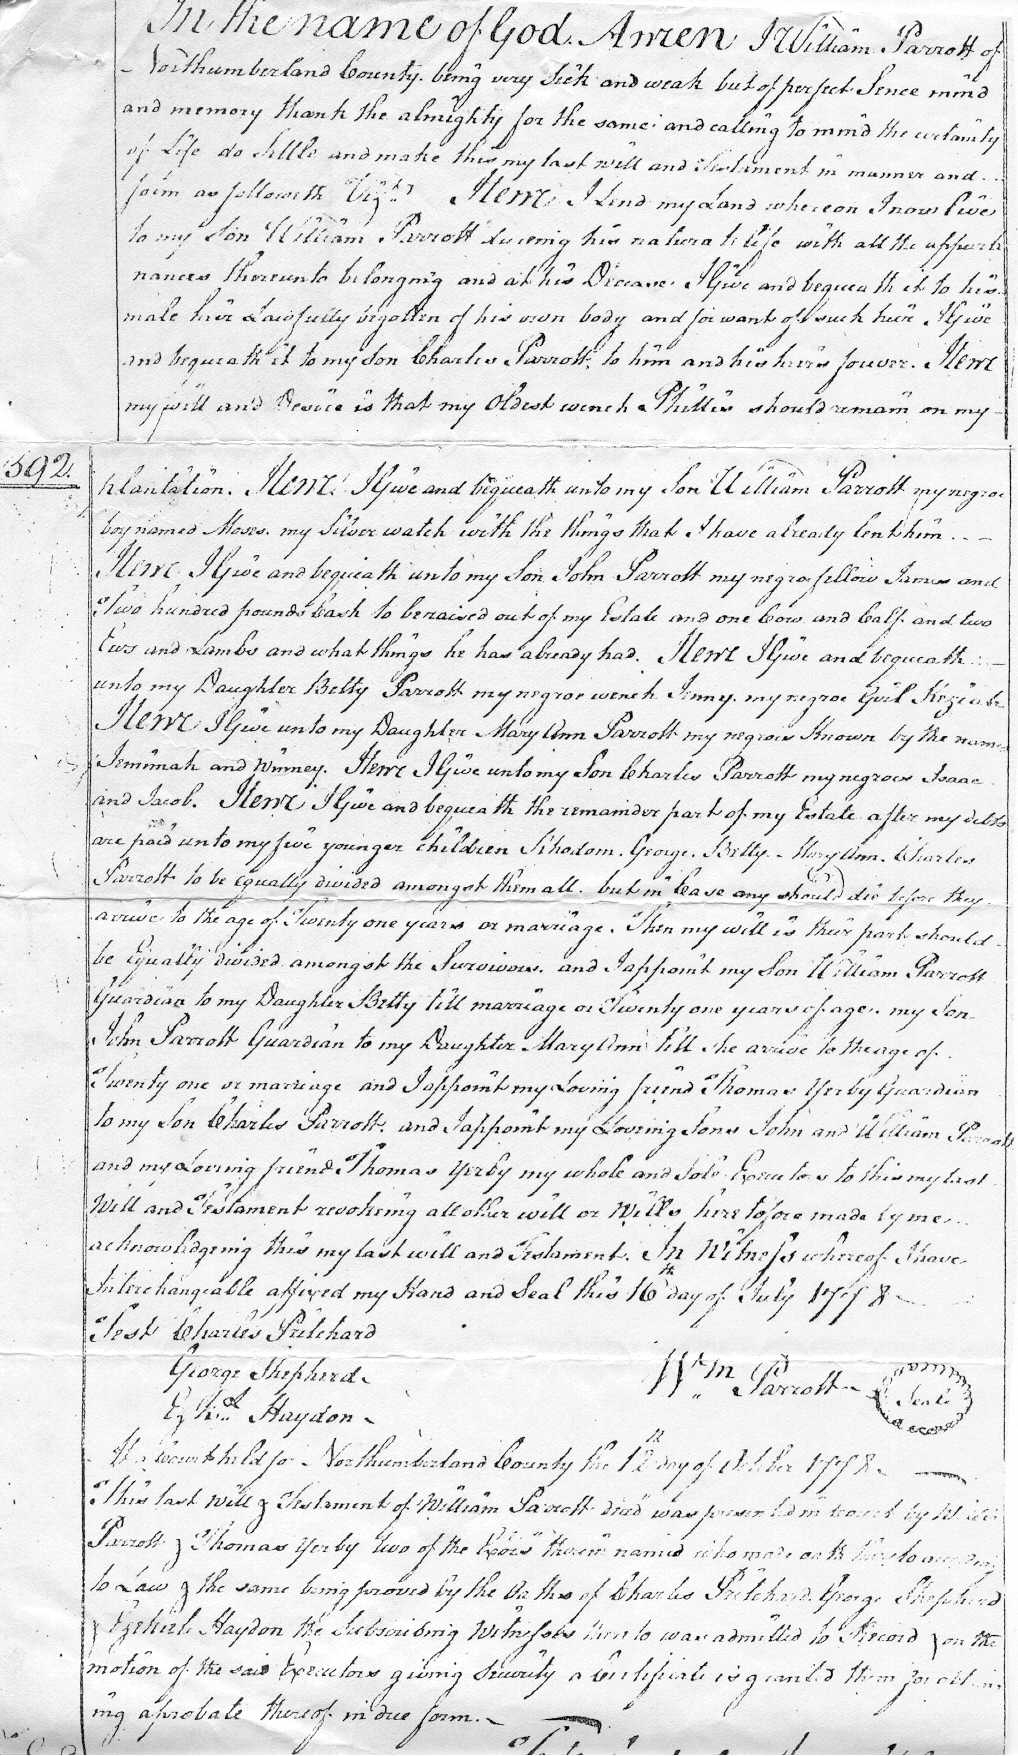 In the name of God. Amen I William Parrott of
Northumberland County. being very Sick and weak but of perfect Sence mind
and memory thank the almighty for the same: and calling to mind the certainty
of Life do Settle and make this my last will and Testiment in manner and
form as followeth Vizt. Item I Lend my Land whereon I now Live
to my Son William Parrott dureing his natural life with all the appurti
nances thereunto belonging and at his Decease. I Give and bequeath it to his
male heir Lawfully begotten of his own body and for want of such heir I Give
and bequeath it to my Son Charles Parrott. to him and his heirs forever. Item
my will and Desire is that my Oldest wench Phillis should remain on my
592.
plantation. Item. I Give and bequeath unto my Son William Parrott my negroe
boy named Moses. my Silver watch with the things that I have already lent him
Item I Give and bequeath unto my Son John Parrott my negroe fellow James and
Two hundred pounds Cash to be raised out of my Estate and one Cow and Calf. and two
Ews and Lambs and what things he has already had. Item I Give and bequeath
unto my Daughter Betty Parrott my negroe wench Jenny. my negroe Girl Keziah
Item I Give unto my Daughter Mary Ann Parrott my negroes Known by the names
Jemimah and Winney. Item I Give unto my Son Charles Parrott my negroes Isaac
and Jacob. Item I Give and bequeath the remainder part of my Estate after my debts
are paid unto my five younger children Rhodom. George. Betty. Mary Ann. Charles
Parrott to be Equally divided amongst them all. but in Case any should die before they
arrive to the age of Twenty one years or marriage. Then my will is their part should
be Equally divided amongst the Survivors. and I appoint my Son William Parrott
Guardian to my Daughter Betty till marriage or Twenty one years of age. my Son
John Parrott Guardian to my Daughter Mary Ann till she arrive to the age of
Twenty one or marriage and I appoint my Loving friend Thomas Yerby Guardian
to my Son Charles Parrott. and I appoint my Loveing Sons John and William Parrott
and my Loving friend Thomas Yerby my whole and Sole Executors to this my last
Will and Testament revokeing all other will or Wills heretofore made by me
acknowledgeing this my last will and Testament. In Witness whereof I have
Interchangeable affixed my Hand and Seal this 16th day of July 1778
Test Charles Pritchard
George Shepherd
Ezekiel Haydon
Wm Parrott
Seal
At a Court held for Northumberland County the 12th day of October 1778
This last Will & Testament of William Parrott decd was presented in Court by William
Parrott & Thomas Yerby two of the Exors therein named who made oath thereto according
to Law & the same being proved by the Oaths of Charles Pritchard. George Shepherd
& Ezekiel Haydon the Subscribing Witnesses thereto was admitted to Record & on the
motion of the said Executors giving Security a Certificate is granted them for obtain
ing a probate thereof in due form.